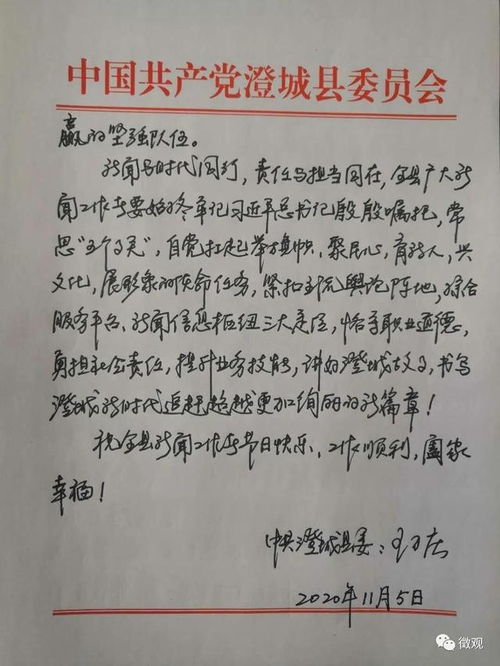 中国共产党澄城县委员会
赢的坚强队伍。
新闻与时代同行，责任与担当同在，全县广大新
闻工作者要始终牢记习近平总书记殷殷嘱托，常
思“五个事关”，自觉扛起举旗帜、聚民心、育新人、兴
文化、展形象的使命任务，紧扣主流舆论阵地、综合
服务平台、新闻信息枢纽三大定位，恪守职业道德，
勇担社会责任，提升业务技能，讲好澄城故事，书写
澄城新时代追赶超越更加绚丽的新篇章！
祝全县新闻工作者节日快乐、工作顺利，阖家
幸福！
中共澄城县委：王万庆
2020年11月5日
微观